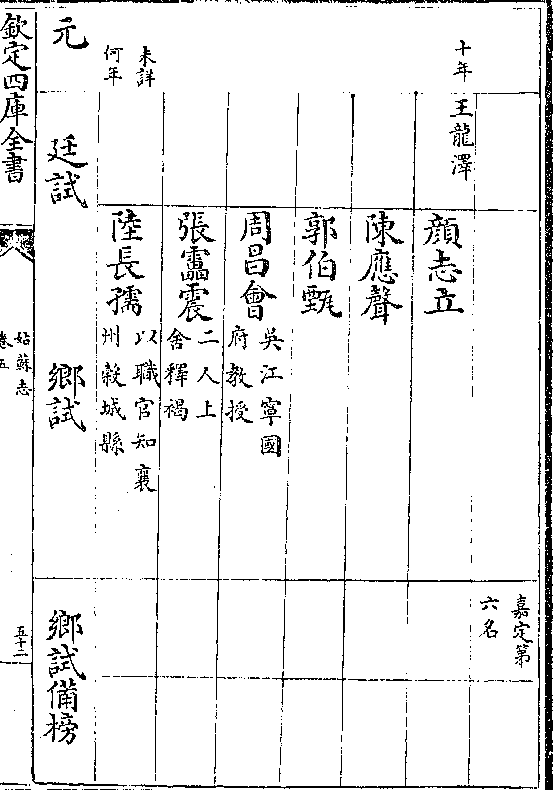 嘉定第
六名
十年
王龍澤
顔志立
陳應聲
郭伯甄
周昌會
吳江寧國
府教授
張靁震
二人上
舍釋褐
陸長孺
以職官知襄
州穀城縣
未詳
何年
元
廷試
鄉試
鄉試備榜
欽定四庫全書
姑蘇志
卷五
五十二